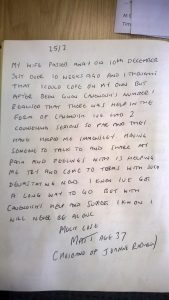 15/2
MY WIFE PASSED AWAY ON 10TH DECEMBER
JUST OVER 10 WEEKS AGO AND I THOUGHT
THAT I COULD COPE ON MY OWN BUT
AFTER BEEN GIVEN CAVENDISH'S NUMBER I
REALISED THAT THERE WAS HELP IN THE
FORM OF CAVENDISH IVE HAD 2
COUNSELLING SESSIONS SO FAR AND THEY
HAVE HELPED ME IMMENSELY. HAVING
SOMEONE TO TALK TO AND SHARE MY
PAIN AND FEELINGS WITH IS HELPING
ME TRY AND COME TO TERMS WITH SUCH
DEVASTATING NEWS I KNOW IVE GOT
A LONG WAY TO GO BUT WITH
CAVENDISH'S HELP AND SUPPORT I KNOW I
WILL NEVER BE ALONE
MUCH LOVE
MATT AGE 37
(HUSBAND OF JOANNE